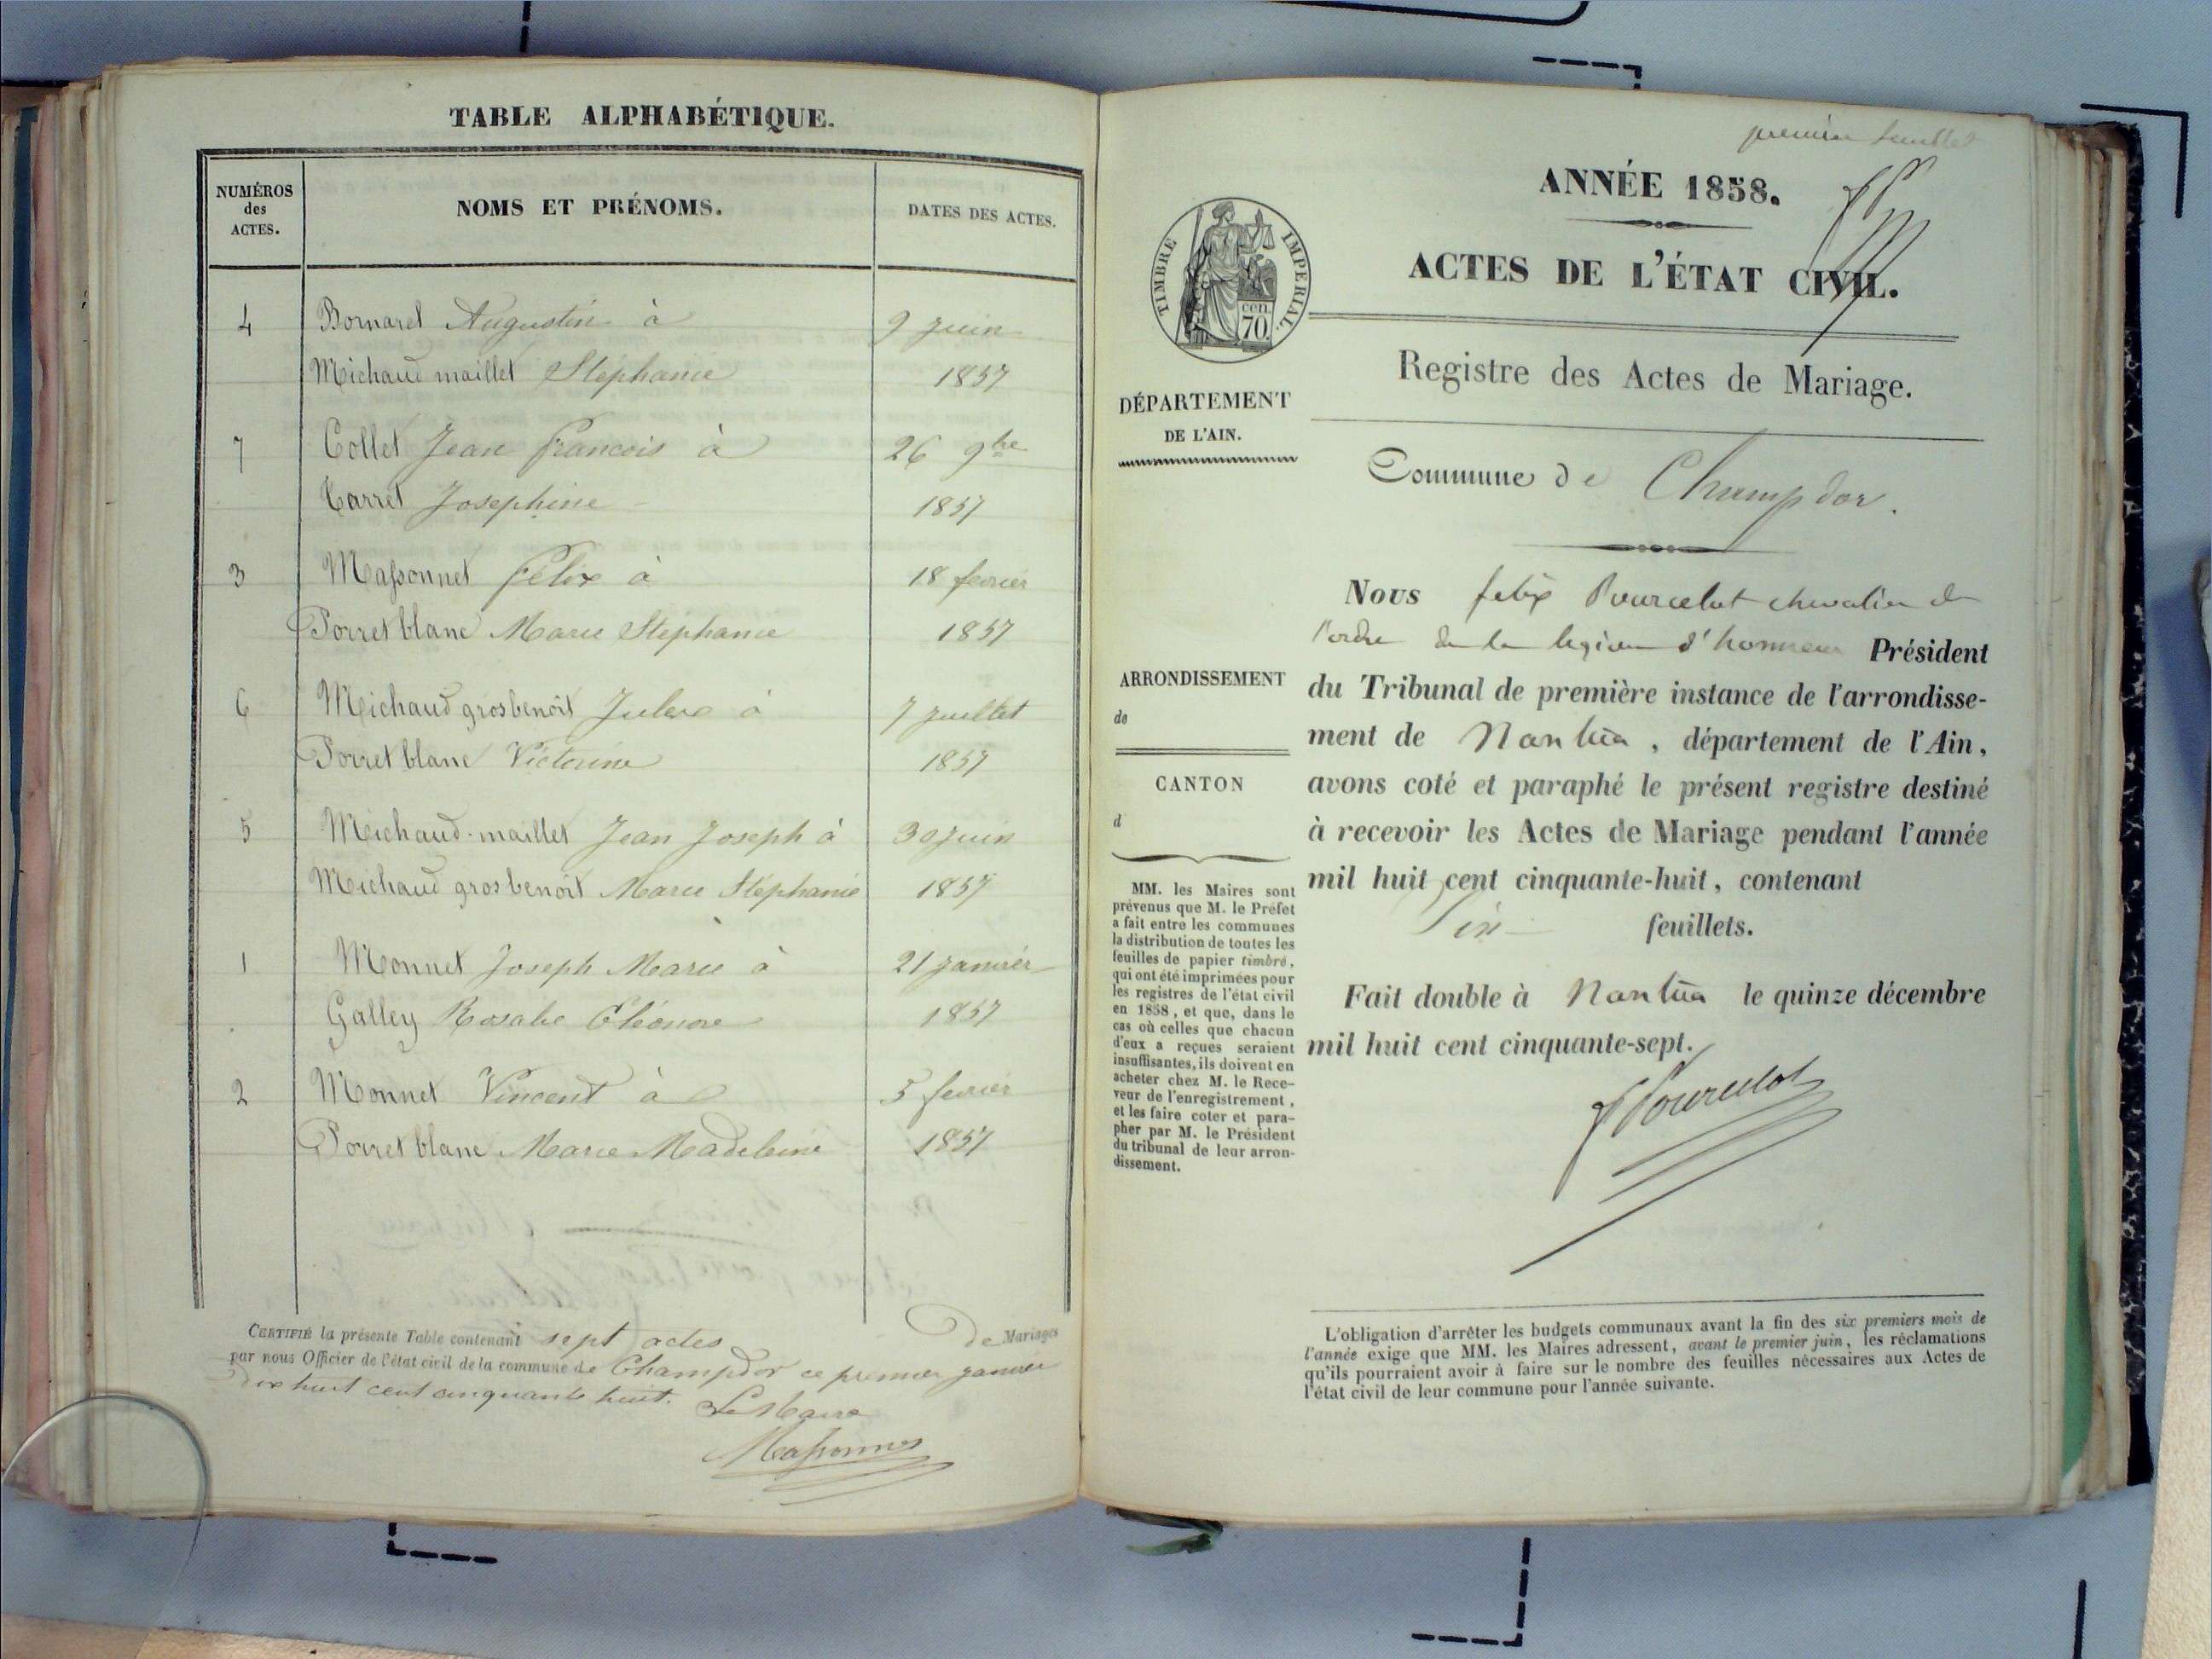 TABLE ALPHABÉTIQUE.
NUMÉROS
des
ACTES.
NOMS ET PRÉNOMS.
DATES DES ACTES.
4 Bornarel Augustin à 9 juin
Michaud maillet Stéphanie 1857
7 Collet Jean françois à 26 9bre
Carrel Josephine 1857
3 Massonnet félix à 18 fevrier
Porret blanc Marie Stephanie 1857
6 Michaud grosbenoit Jules à 7 juillet
Porret blanc Victorine 1857
5 Michaud-maillet Jean Joseph à 30 juin
Michaud grosbenoit Marie Stéphanie 1857
1 Monnet Joseph Marie à 21 janvier
Galley Rosalie Eléonore 1857
2 Monnet Vincent à 5 fevrier
Porret blanc Marie Madeleine 1857
CERTIFIÉ la présente Table contenant sept actes De Mariages
par nous Officier de l'état civil de la commune de Champdor ce premier janvier
dix huit cent cinquante huit.
Le Maire
Massonnet
premier feuillet
ANNÉE 1858.
ACTES DE L'ÉTAT CIVIL.
Registre des Actes de Mariage.
TIMBRE IMPERIAL.
cen.
70.
DÉPARTEMENT
DE L'AIN.
Commune de Champdor.
Nous felix Pourcelot chevalier de
l'ordre de la legion d'honneur Président
du Tribunal de première instance de l'arrondisse-
ment de Nantua, département de l'Ain,
avons coté et paraphé le présent registre destiné
à recevoir les Actes de Mariage pendant l'année
mil huit cent cinquante-huit, contenant
Six feuillets.
Fait double à Nantua le quinze décembre
mil huit cent cinquante-sept.
F Pourcelot
ARRONDISSEMENT
de
CANTON
d
MM. les Maires sont
prévenus que M. le Préfet
a fait entre les communes
la distribution de toutes les
feuilles de papier timbré,
qui ont été imprimées pour
les registres de l'état civil
en 1858, et que, dans le
cas où celles que chacun
d'eux a reçues seraient
insuffisantes, ils doivent en
acheter chez M. le Rece-
veur de l'enregistrement,
et les faire coter et para-
pher par M. le Président
du tribunal de leur arron-
dissement.
L'obligation d'arrêter les budgets communaux avant la fin des six premiers mois de
l'année exige que MM. les Maires adressent, avant le premier juin, les réclamations
qu'ils pourraient avoir à faire sur le nombre des feuilles nécessaires aux Actes de
l'état civil de leur commune pour l'année suivante.